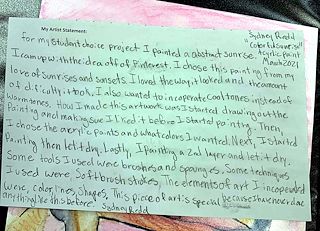 Sydney Redd
"Colorful sunrise"
My Artist Statement:
Acyrlic paint
March 2021
For my student choice project I painted a abstract sunrise.
I came up with the idea off of Pinterest. I chose this painting from my
love of sunrises and sunsets. I loved the way it looked and the amount
of dificulty it took. I also wanted to incoperate cool tones instead of
warm tones. How I made this artwork was I started drawing out the
Painting and making sure I liked it before I started painting. Then,
I chose the acrylic paints and what colors I wanted. Next, I started
Painting then let it dry. Lastly, I painting a 2nd layer and let it dry.
Some tools I used were brushes and spounges. Some techniques
I used were, Soft brush stokes, The elements of art I incopended
were, color, lines, Shapes, This piece of art is special because I have never done
anything like this before. Sydney Redd